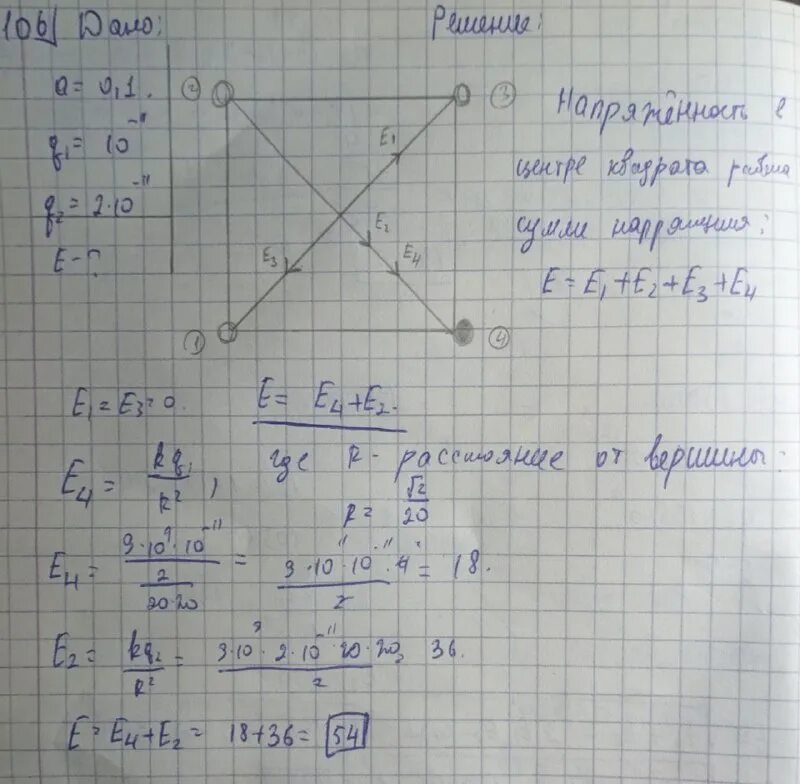 106 Дано:
Решение:
a = 0,1.
q₁ = 10⁻¹¹
q₂ = 2·10⁻¹¹
E - ?
② ③
E₁
E₂
E₃ E₄
① ④
Напряжённость в
центре квадрата равна
сумме напряжения:
E = E₁ + E₂ + E₃ + E₄
E₁ = E₃ = 0. E = E₄ + E₂.
E₄ = kq₁/R², где R - расстояние от вершины:
R = √2/20
E₄ = 9·10⁹·10⁻¹¹/(2/20·20) = 9·10¹¹·10⁻¹¹·4/2 = 18.
E₂ = kq₂/R² = 9·10⁹·2·10⁻¹¹·20·20/2 = 36.
E = E₄ + E₂ = 18 + 36 = 54